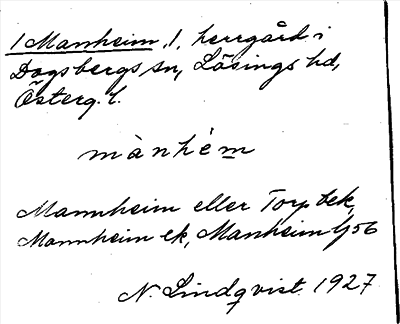 1 Manheim, 1, herrgård i
Dagsbergs sn, Lösings hd,
Österg. l.
mànhé m
Mannheim eller Torp bek,
Mannheim ek, Manheim 56
N. Lindqvist 1927